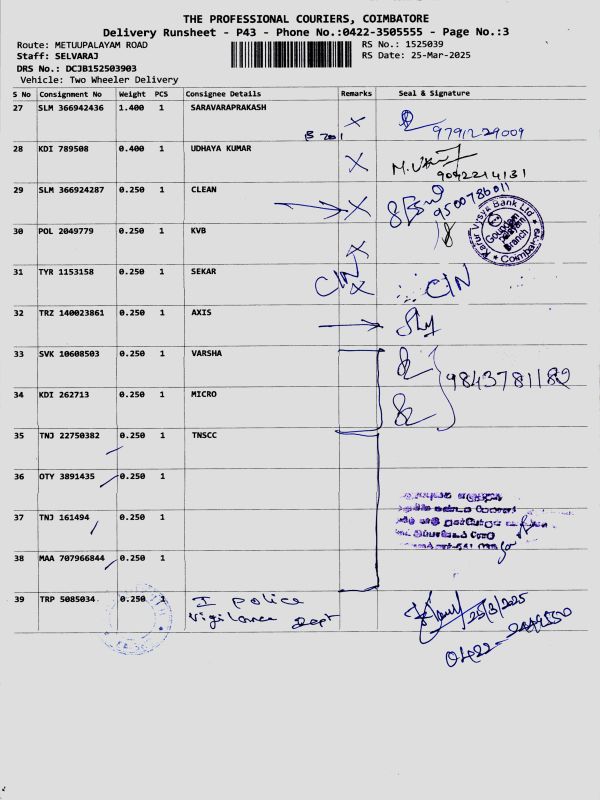 THE PROFESSIONAL COURIERS, COIMBATORE
Delivery Runsheet - P43 - Phone No.:0422-3505555 - Page No.:3
Route: METUUPALAYAM ROAD
RS No.: 1525039
Staff: SELVARAJ
RS Date: 25-Mar-2025
DRS No.: DCJB152503903
Vehicle: Two Wheeler Delivery
S No Consignment No Weight PCS Consignee Details Remarks Seal & Signature
27 SLM 366942436 1.400 1 SARAVARAPRAKASH X
B 201 9791229009
28 KDI 789508 0.400 1 UDHAYA KUMAR X
9042214131
29 SLM 366924287 0.250 1 CLEAN X 9500786011
30 POL 2049779 0.250 1 KVB X
Karur Vysya Bank Ltd
Branch
Coimbatore
31 TYR 1153158 0.250 1 SEKAR CIN X CIN
32 TRZ 140023861 0.250 1 AXIS
33 SVK 10608503 0.250 1 VARSHA
9843781182
34 KDI 262713 0.250 1 MICRO
35 TNJ 22750382 0.250 1 TNSCC
36 OTY 3891435 0.250 1
37 TNJ 161494 0.250 1
38 MAA 707966844 0.250 1
39 TRP 5085034 0.250 1 I police
Vigilance Dept
25/3/2025